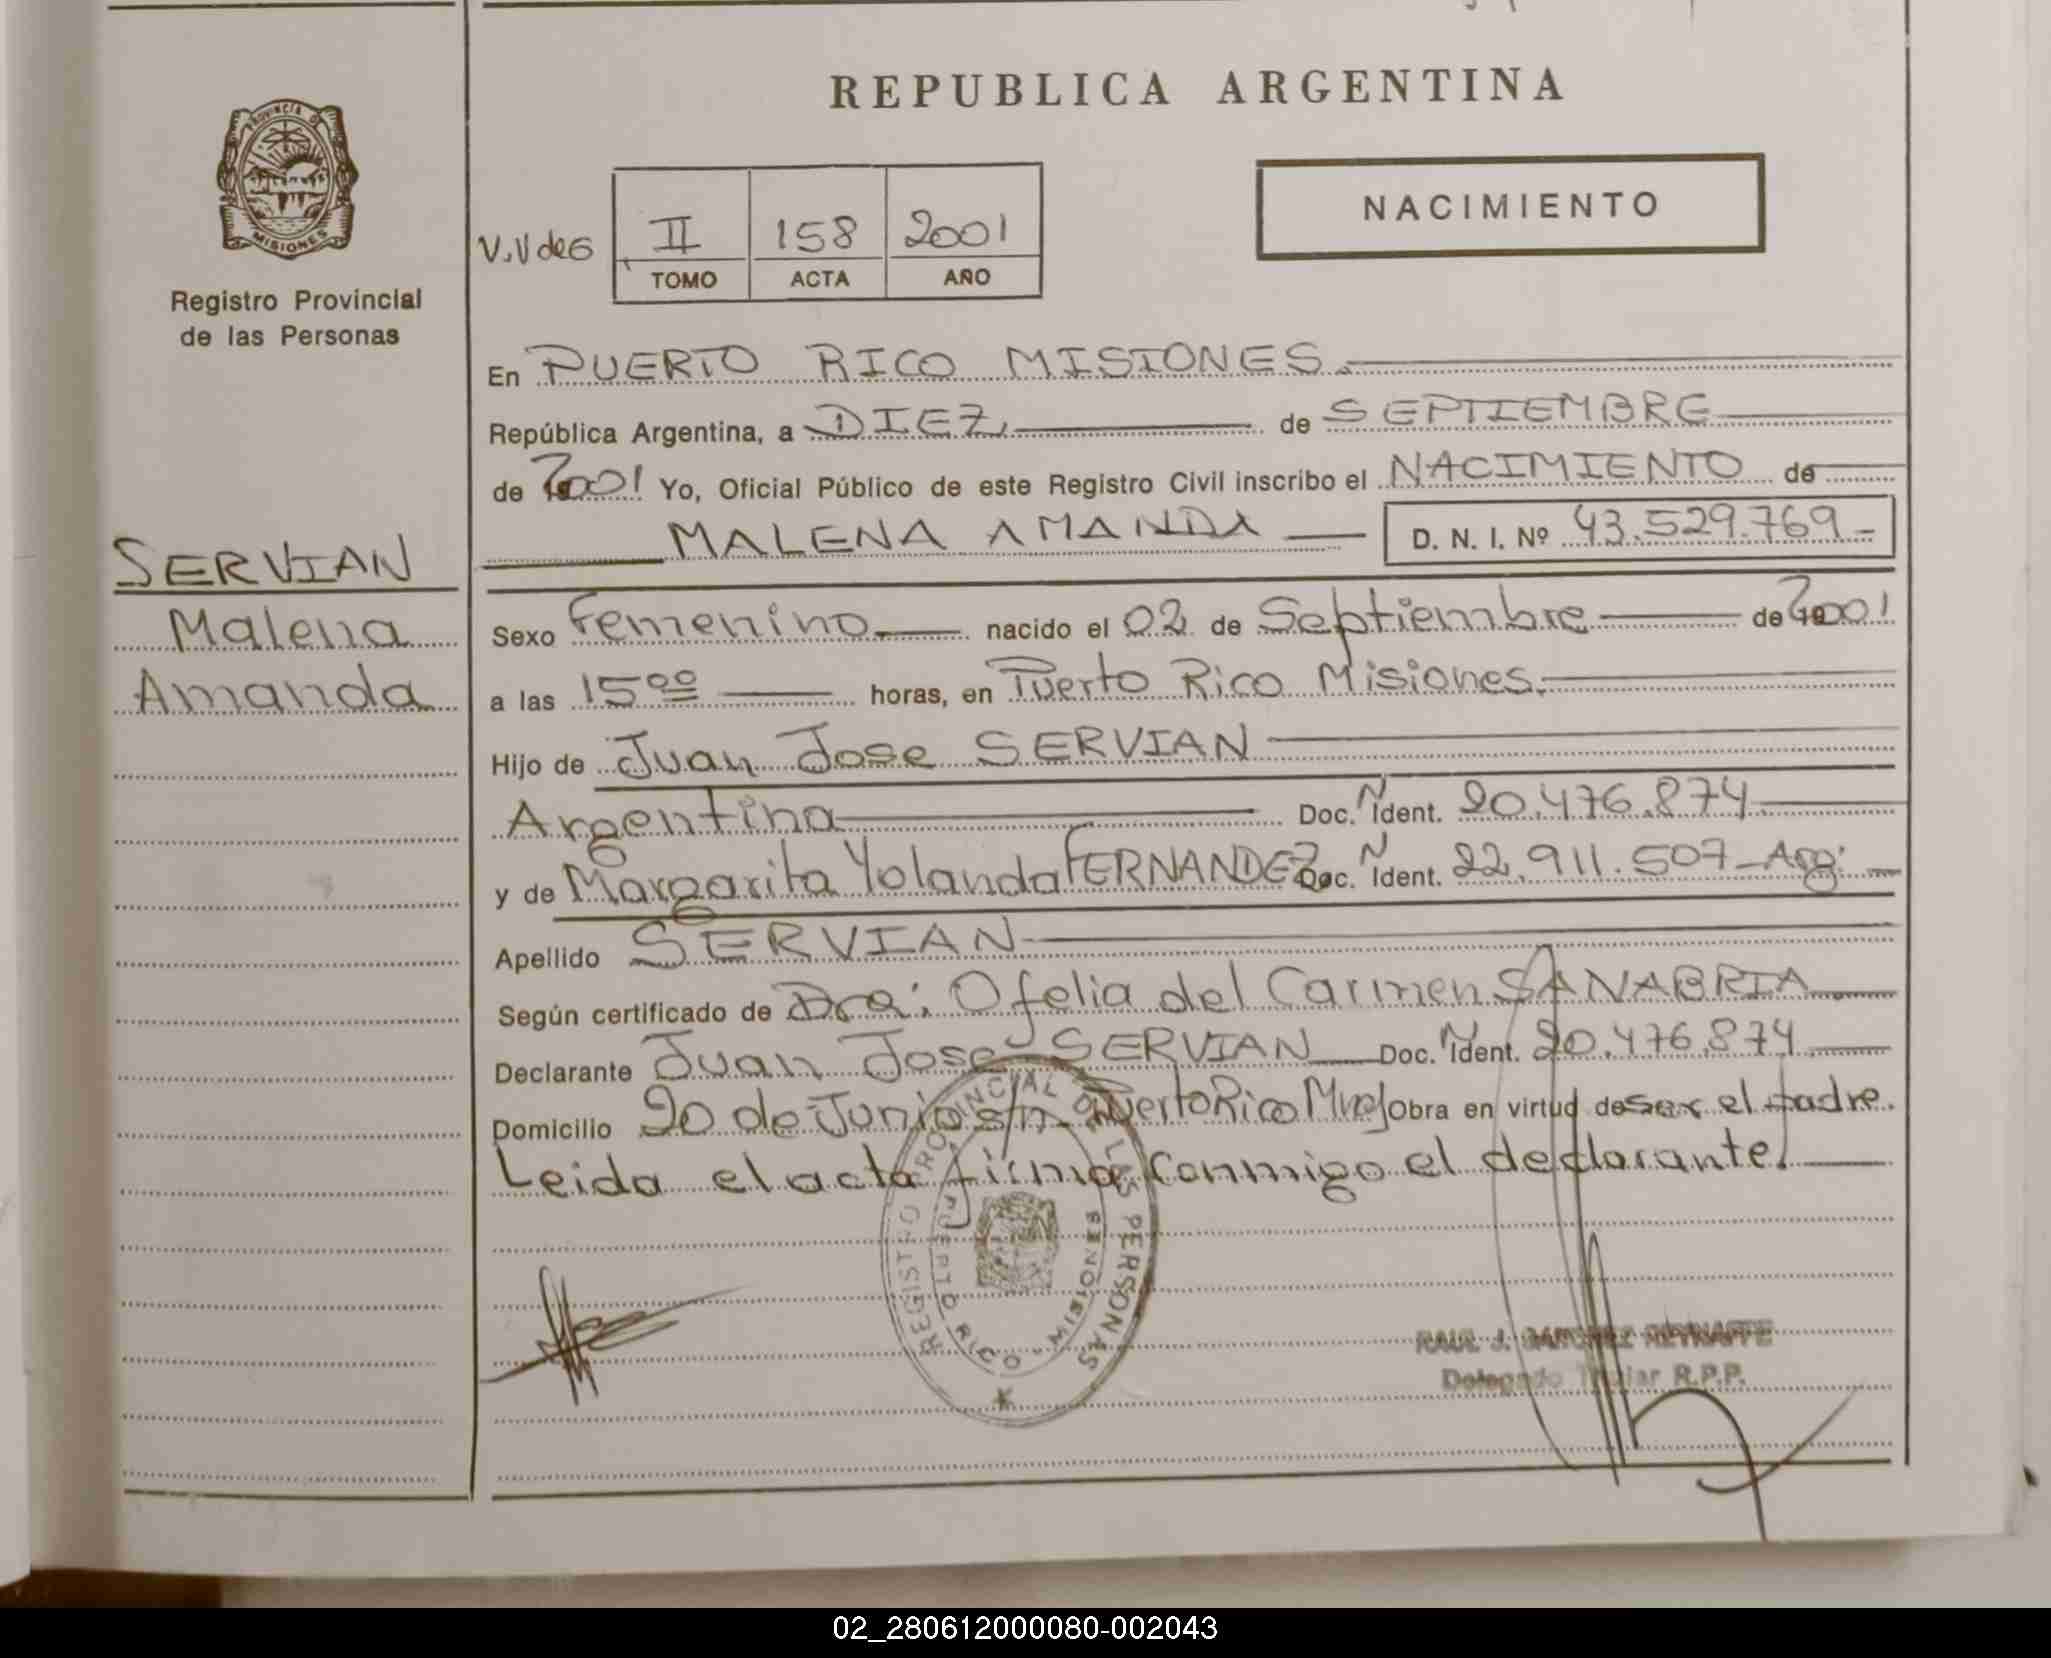 REPUBLICA ARGENTINA
PROVINCIA D
MISIONES
Registro Provincial
de las Personas
NACIMIENTO
V.V de G
II 158 2001
TOMO ACTA AÑO
En PUERTO RICO MISIONES.
República Argentina, a DIEZ de SEPTIEMBRE
de 2001 Yo, Oficial Público de este Registro Civil inscribo el NACIMIENTO de
MALENA AMANDA D. N. I. Nº 43.529.769-
SERVIAN
Malena
Amanda
Sexo Femenino nacido el 02 de Septiembre de 2001
a las 15⁰⁰ horas, en Puerto Rico Misiones.
Hijo de Juan Jose SERVIAN
Argentina Doc. N Ident. 20.476.874
y de Margarita Yolanda FERNANDEZ Doc. N Ident. 22.911.507-Arg.
Apellido SERVIAN
Según certificado de Dra: Ofelia del Carmen SANABRIA
Declarante Juan Jose SERVIAN Doc. N Ident. 20.476.874
Domicilio 20 de Junio s/n Puerto Rico Mnes Obra en virtud de ser el padre.
Leida el acta firma conmigo el declarante.
REGISTRO PROVINCIAL DE LAS PERSONAS
PUERTO RICO - MISIONES
RAUL J.
Delegado Titular R.P.P.
02_280612000080-002043